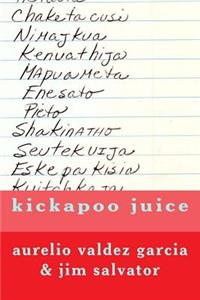 Chaketa cusi
Nimajkua
Kenuathija
Mapua Meta
Enesato
Pieto
ShakiNATHO
Seutekuija
Eskepakisia
kickapoo juice
aurelio valdez garcia
& jim salvator